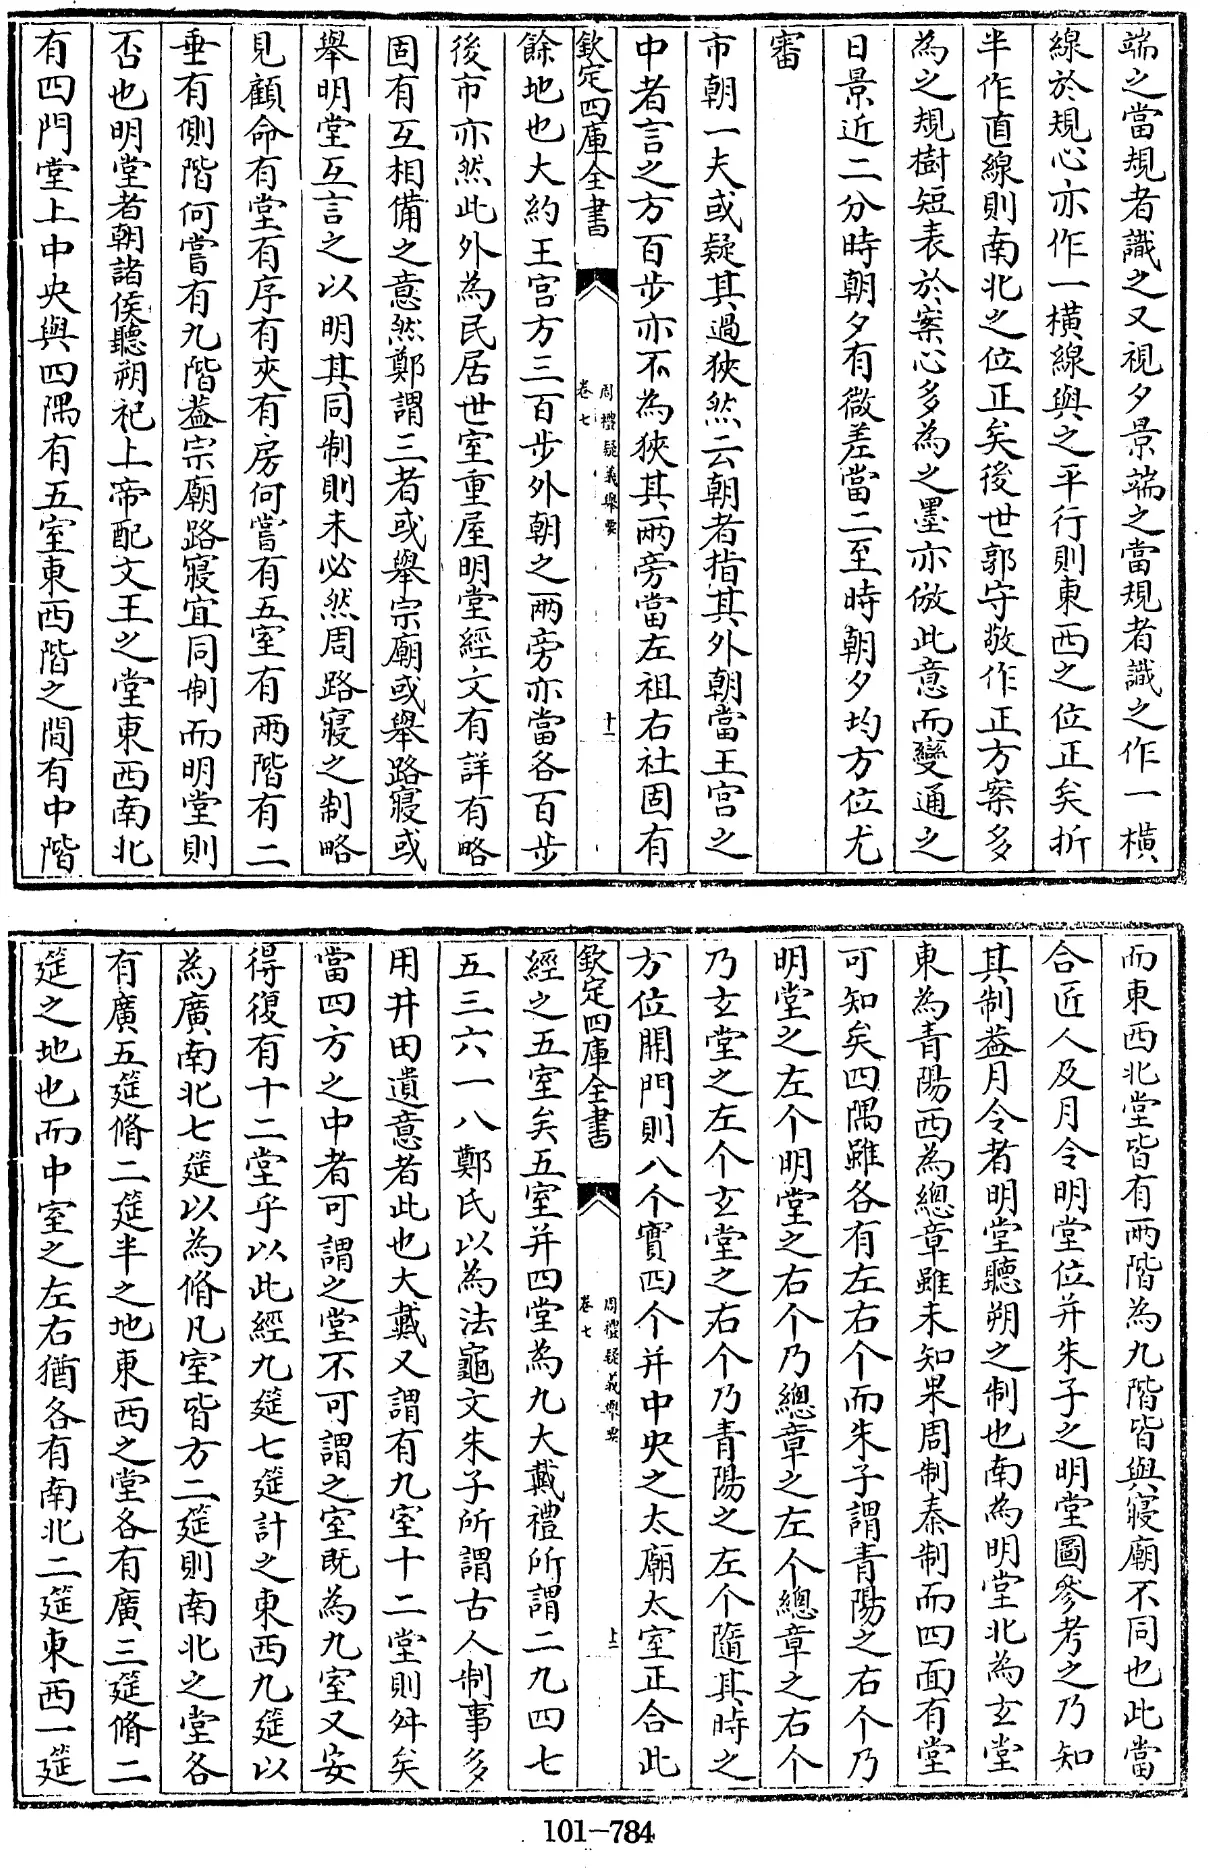 端之當規者識之又視夕景端之當規者識之作一橫
線於規心亦作一橫線與之平行則東西之位正矣折
半作直線則南北之位正矣後世郭守敬作正方案多
為之規樹短表於案心多為之墨亦倣此意而變通之
日景近二分時朝夕有微差當二至時朝夕均方位尤
審
市朝一夫或疑其過狹然云朝者指其外朝當王宫之
中者言之方百步亦不為狹其兩旁當左祖右社固有
欽定四庫全書
周禮疑義舉要
卷七
十一
餘地也大約王宫方三百步外朝之兩旁亦當各百步
後市亦然此外為民居世室重屋明堂經文有詳有略
固有互相備之意然鄭謂三者或舉宗廟或舉路寢或
舉明堂互言之以明其同制則未必然周路寢之制略
見顧命有堂有序有夾有房何嘗有五室有兩階有二
垂有側階何嘗有九階葢宗廟路寢宜同制而明堂則
否也明堂者朝諸侯聽朔祀上帝配文王之堂東西南北
有四門堂上中央與四隅有五室東西階之間有中階
而東西北堂皆有兩階為九階皆與寢廟不同也此當
合匠人及月令明堂位并朱子之明堂圖參考之乃知
其制葢月令者明堂聽朔之制也南為明堂北為玄堂
東為青陽西為總章雖未知果周制秦制而四面有堂
可知矣四隅雖各有左右个而朱子謂青陽之右个乃
明堂之左个明堂之右个乃總章之左个總章之右个
乃玄堂之左个玄堂之右个乃青陽之左个隨其時之
方位開門則八个實四个并中央之太廟太室正合此
欽定四庫全書
周禮疑義舉要
卷七
十二
經之五室矣五室并四堂為九大戴禮所謂二九四七
五三六一八鄭氏以為法龜文朱子所謂古人制事多
用井田遺意者此也大戴又謂有九室十二堂則舛矣
當四方之中者可謂之堂不可謂之室既為九室又安
得復有十二堂乎以此經九筵七筵計之東西九筵以
為廣南北七筵以為脩凡室皆方二筵則南北之堂各
有廣五筵脩二筵半之地東西之堂各有廣三筵脩二
筵之地也而中室之左右猶各有南北二筵東西一筵
101-784